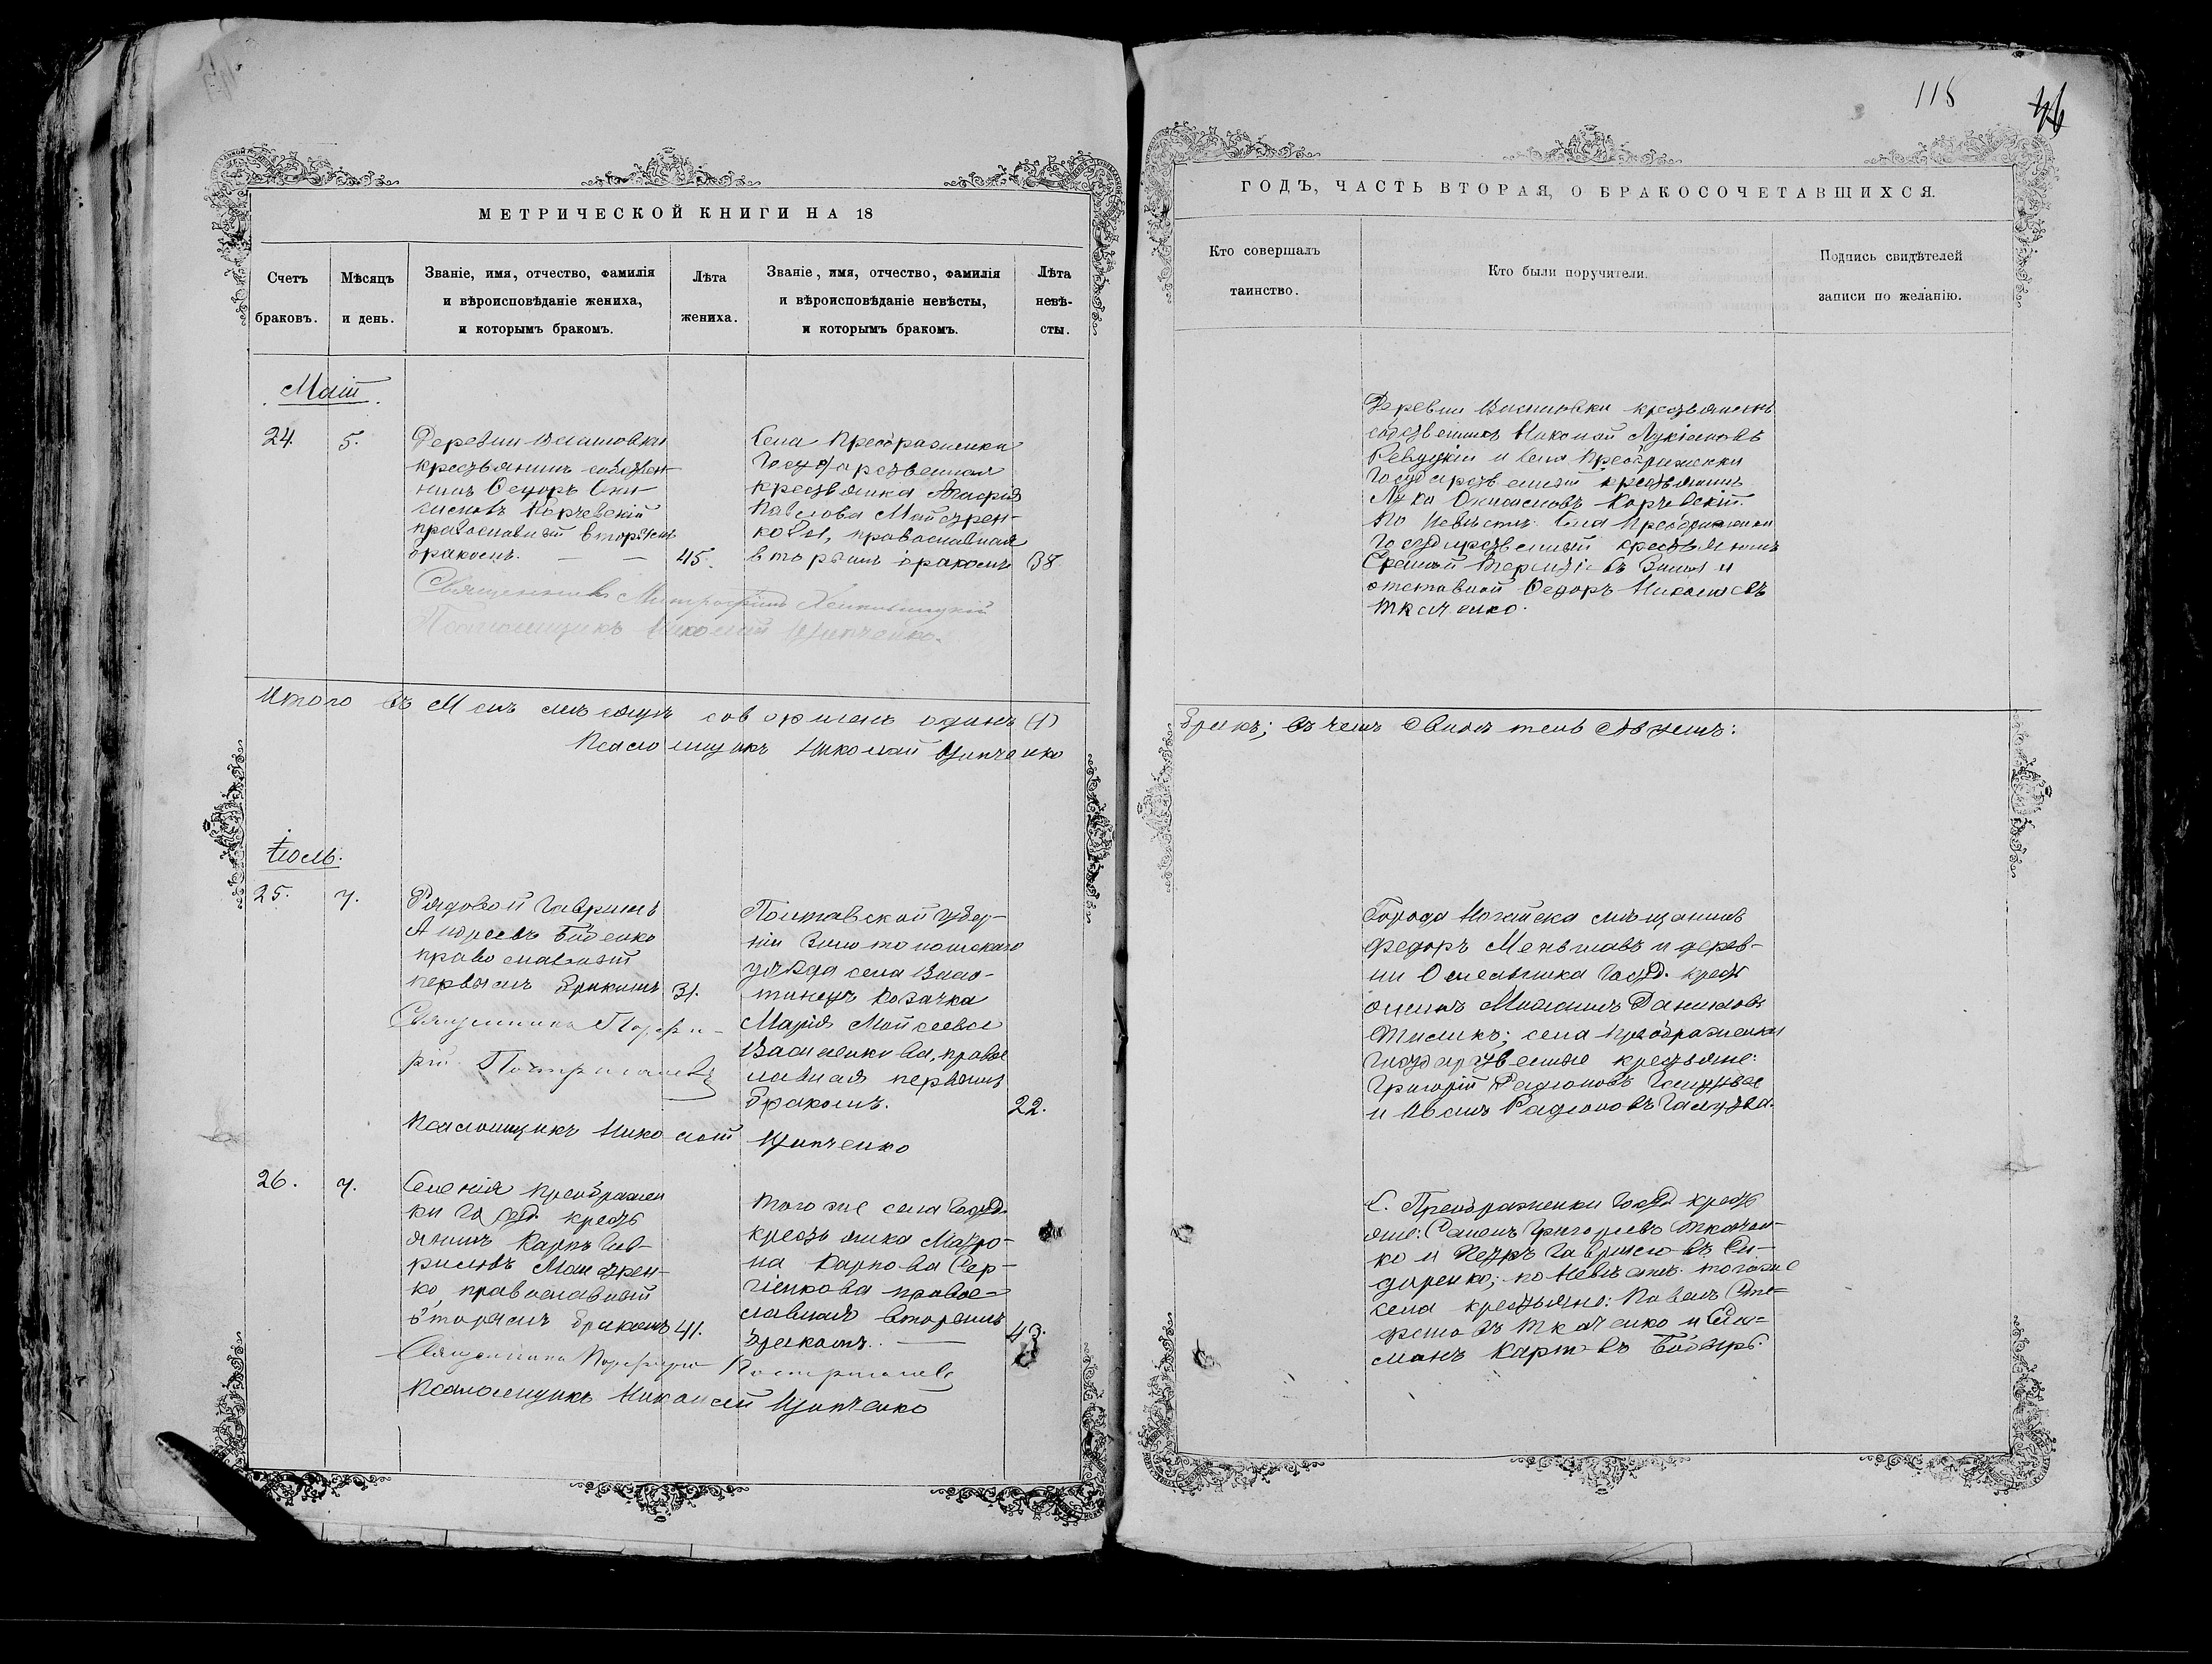 118
46
МЕТРИЧЕСКОЙ КНИГИ НА 18
Счетъ
браковъ.
Мѣсяцъ
и день.
Званіе, имя, отчество, фамилія
и вѣроисповѣданіе жениха,
и которымъ бракомъ.
Лѣта
жениха.
Званіе, имя, отчество, фамилія
и вѣроисповѣданіе невѣсты,
и которымъ бракомъ.
Лѣта
невѣ-
сты.
Май
24.
5.
Деревни
крестьянинъ собствен-
никъ Ѳедоръ
Корчевскій
православный вторымъ
бракомъ.
45.
Села Преображенки
Государственная
крестьянка Марія
Павлова Майстрен-
кова, православная
вторымъ бракомъ
38
Священникъ Митрофанъ
Псаломщикъ Николай Ципченко.
Итого въ Маѣ мѣсяцѣ совершенъ одинъ (1)
Псаломщикъ Николай Ципченко
Іюль.
25.
7.
Рядовой Гавріилъ
Андреевъ Биденко
православный
первымъ бракомъ
31.
Священникъ Порфи-
рій
Полтавской губер-
ніи Золотоношскаго
уѣзда села
козачка
Марія Мойсеева
Василенкова, право
славная первымъ
бракомъ.
22.
Псаломщикъ Николай Ципченко
26.
7.
Селенія Преображен
ки Госуд. кресть
янинъ Карпъ Гав-
риловъ Майстрен-
ко, православный
вторымъ бракомъ
41.
Того же села Госуд.
крестьянка Матро-
на Карпова Сер-
гіенкова право-
славная вторымъ
бракомъ.
43.
Священникъ Порфирій
Псаломщикъ Николай Ципченко
ГОДЪ, ЧАСТЬ ВТОРАЯ, О БРАКОСОЧЕТАВШИХСЯ.
Кто совершалъ
таинство.
Кто были поручители.
Подпись свидѣтелей
записи по желанію.
Деревни крестьянинъ
собственникъ Николай Лукіановъ
Ревуцкій и села Преображенки
Государственный крестьянинъ
Лука Корчевскій.
По невѣстѣ: Села Преображенки
Государственный крестьянинъ
и
отставной Ѳедоръ Николаевъ
Ткаченко.
бракъ; въ чемъ
Города Ногайска мѣщанинъ
Федоръ и дерев-
ни Госуд. кресть
янинъ Даниловъ
села Преображенки
государственные крестьяне:
Григорій Радіоновъ
и Иванъ Радіоновъ
С. Преображенки Госуд. кресть
яне: Григорьевъ Ткачен-
ко и Петръ Гавриловъ Си-
даренко; по невѣстѣ: того же
села крестьяне: Павелъ
Ткаченко и
Карповъ